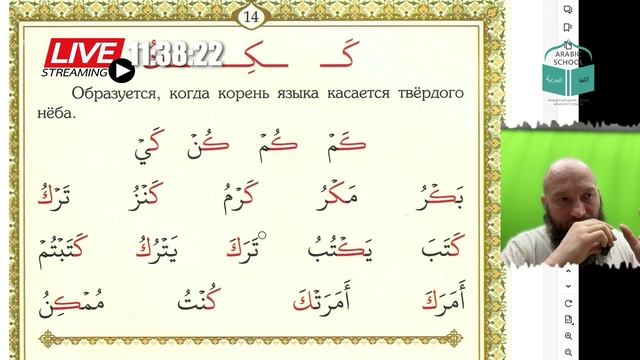 14
LIVE
STREAMING
11:38:22
كَـ ـكِـ ـكُ
Образуется, когда корень языка касается твёрдого
нёба.
كَمْ كُمْ كُنْ كَيْ
بَكْرُ مَكْرُ كَرْمُ كَنْزُ تَرْكُ
كَتَبَ يَكْتُبُ تَرَكَ يَتْرُكُ كَتَبْتُمْ
أَمَرَكَ أَمَرَتْكَ كُنْتُ مُمْكِنُ
ARABIC
SCHOOL
اللغة العربية